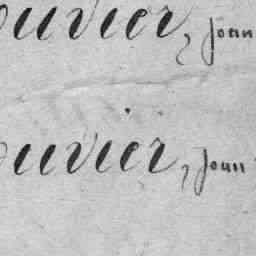 ouvier, Jean
ouvier, Jean